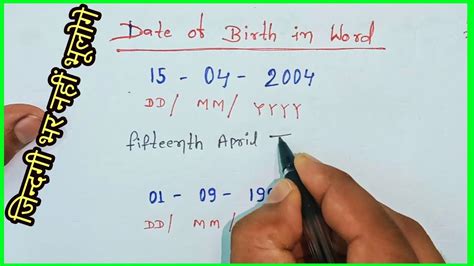 Date of Birth in Word
जिन्दगी भर नहीं भूलोगे
15 - 04 - 2004
DD/ MM/ YYYY
fifteenth April T
01 - 09 - 199
DD/ MM/